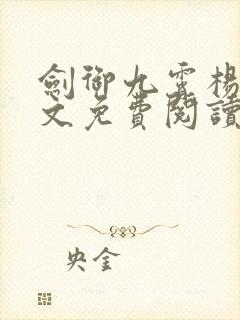 劍御九霄楊
文免費閱讀
央金